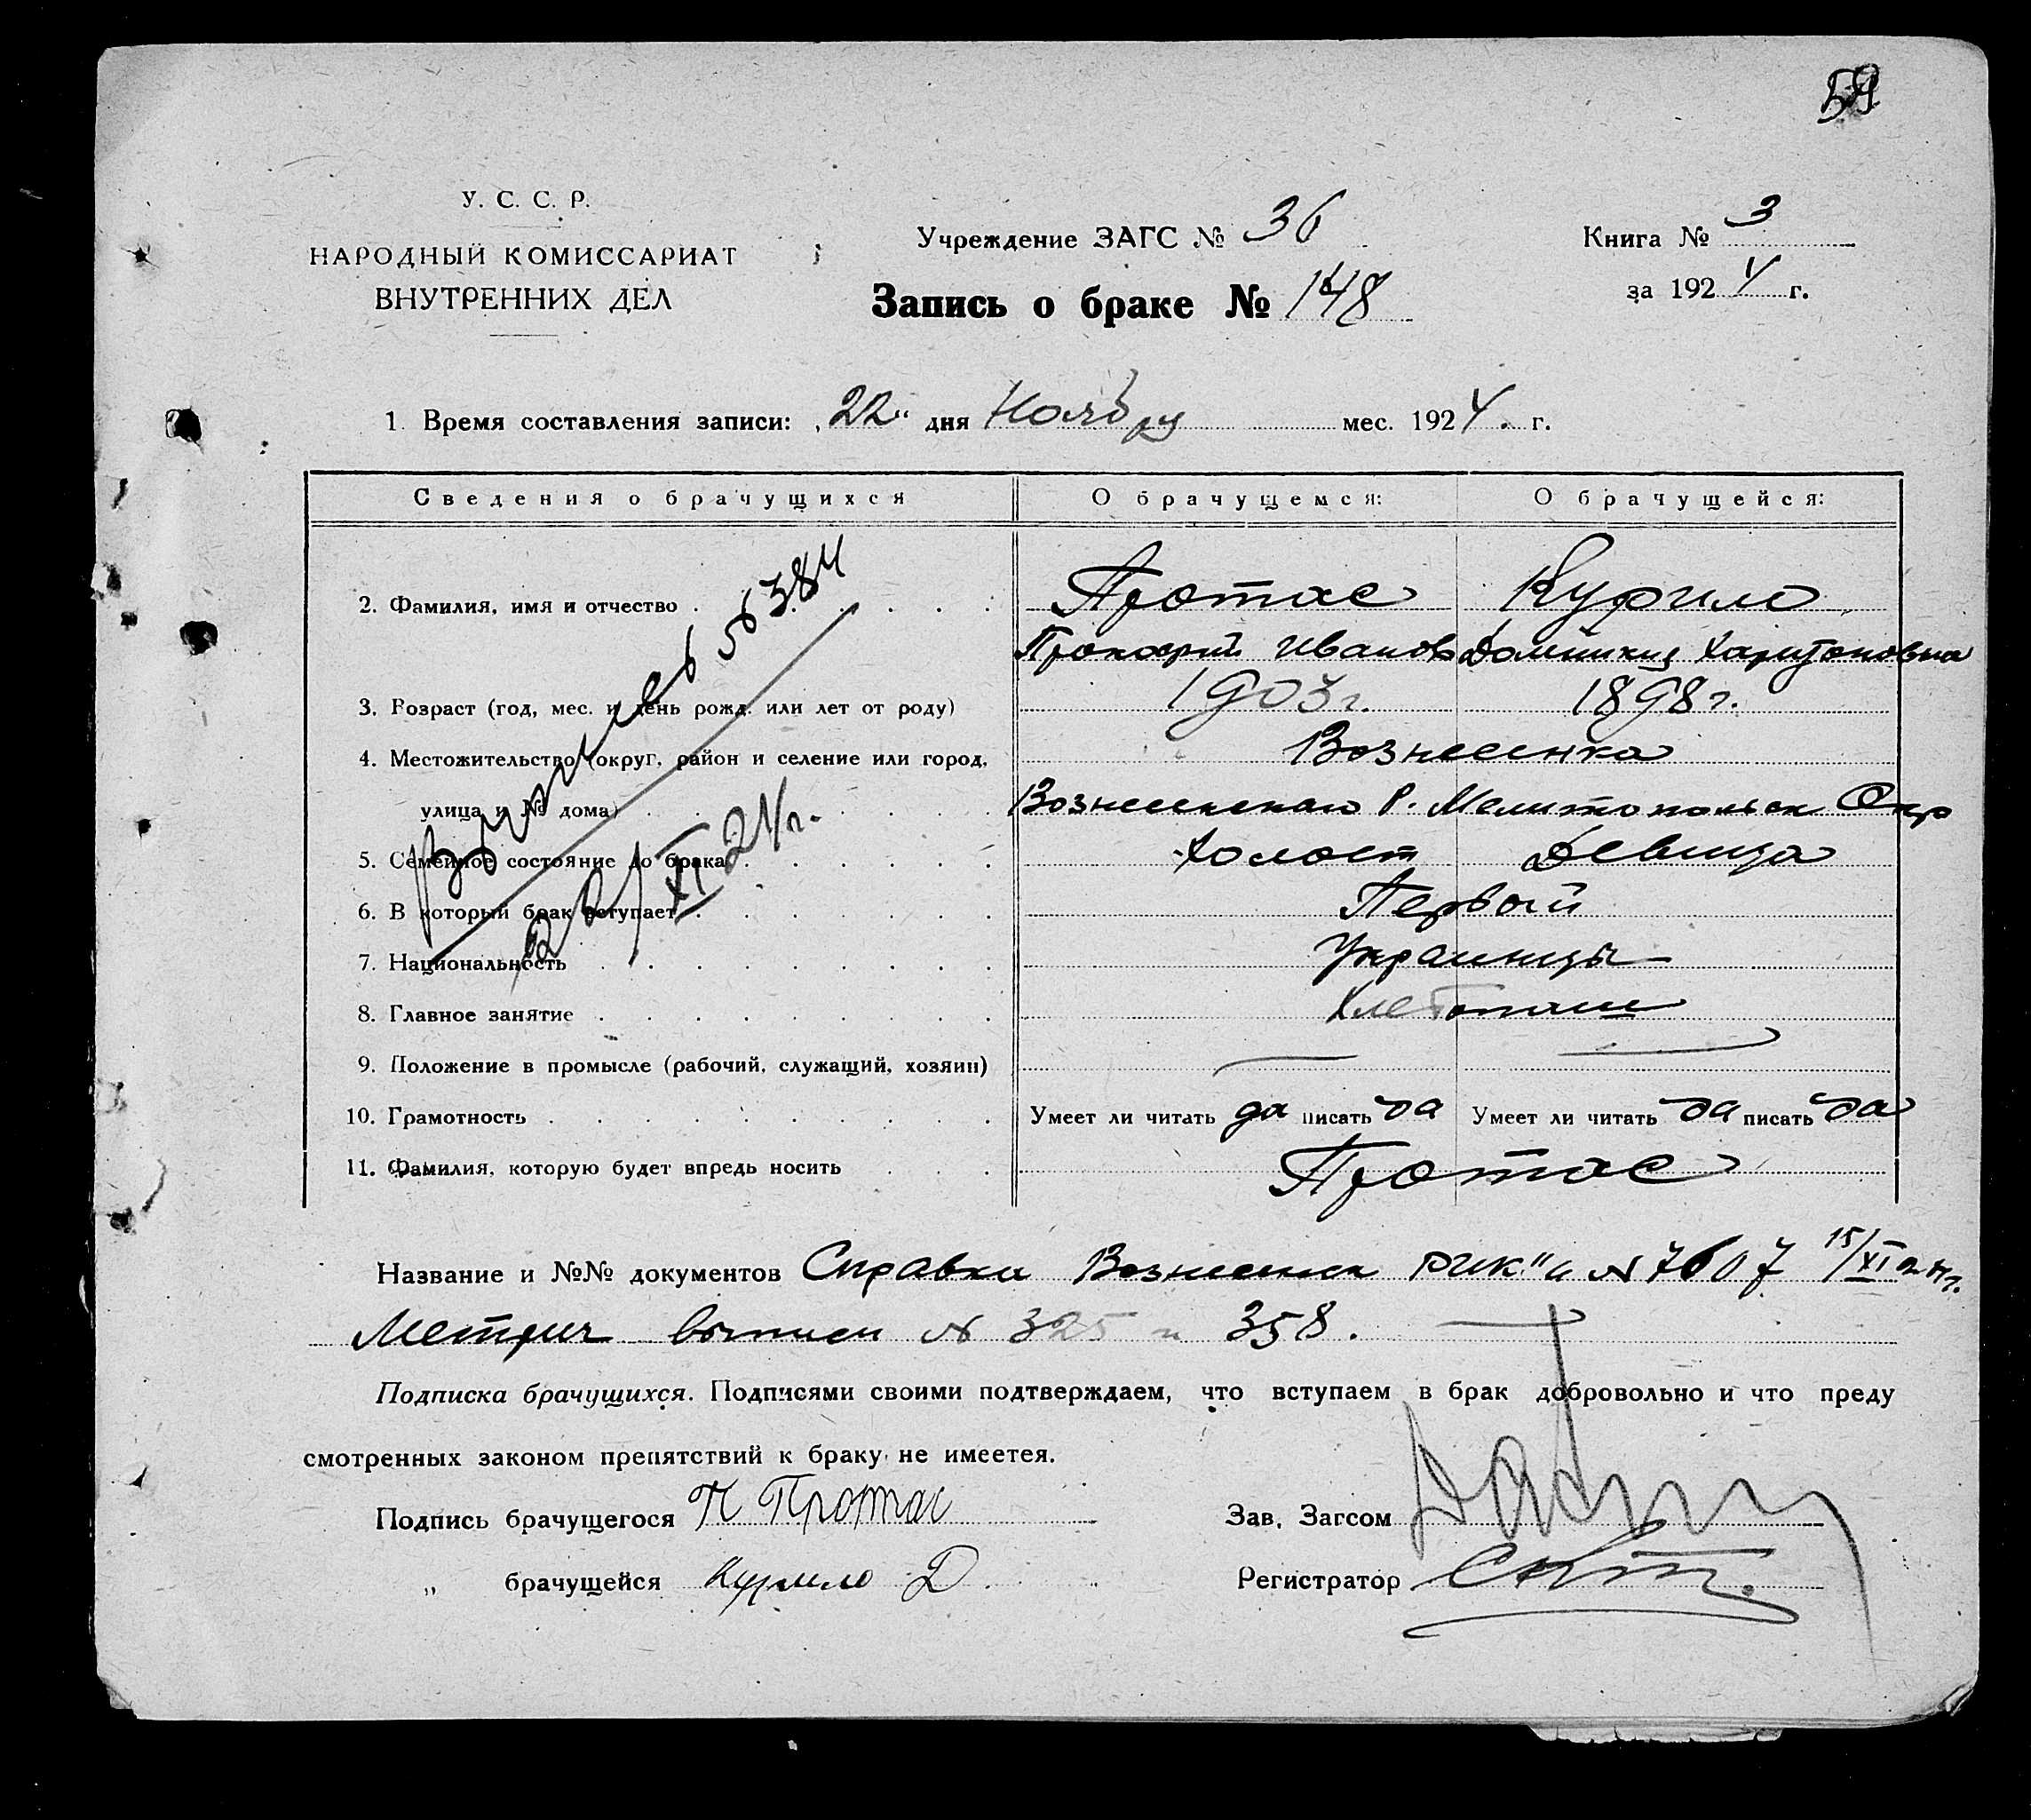 59
У. С. С. Р.
НАРОДНЫЙ КОМИССАРИАТ
ВНУТРЕННИХ ДЕЛ
Учреждение ЗАГС № 36
Запись о браке № 148
Книга № 3
за 1924 г.
1. Время составления записи: „22“ дня Ноября мес. 1924. г.
Сведения о брачущихся О брачущемся: О брачущейся:
2. Фамилия, имя и отчество Протас Курило
Прокофий Иванов Домникия Харитоновна
3. Возраст (год, мес. и день рожд. или лет от роду) 1903 г. 1898 г.
4. Местожительство (округ, район и селение или город, Вознесенка
улица и № дома) Вознесенского Р. Мелитопольск Окр
5. Семейное состояние до брака Холост Девица
6. В который брак вступает Первый
7. Национальность Украинцы
8. Главное занятие Хлебопаш
9. Положение в промысле (рабочий, служащий, хозяин) — —
10. Грамотность Умеет ли читать да писать да Умеет ли читать да писать да
11. Фамилия, которую будет впредь носить Протас
Выпись № 384
22/XI 24 г.
Название и №№ документов Справки Вознесенск РИК"а № 7607 15/XI 24 г.
Метрич выписи № 325 и 358. —
Подписка брачущихся. Подписями своими подтверждаем, что вступаем в брак добровольно и что преду
смотренных законом препятствий к браку не имеется.
Подпись брачущегося П Протас Зав. Загсом
„ брачущейся Курило Д. Регистратор